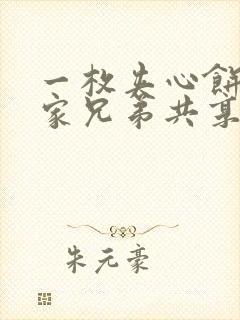 一枚夹心餅
家兄弟共享
朱元豪